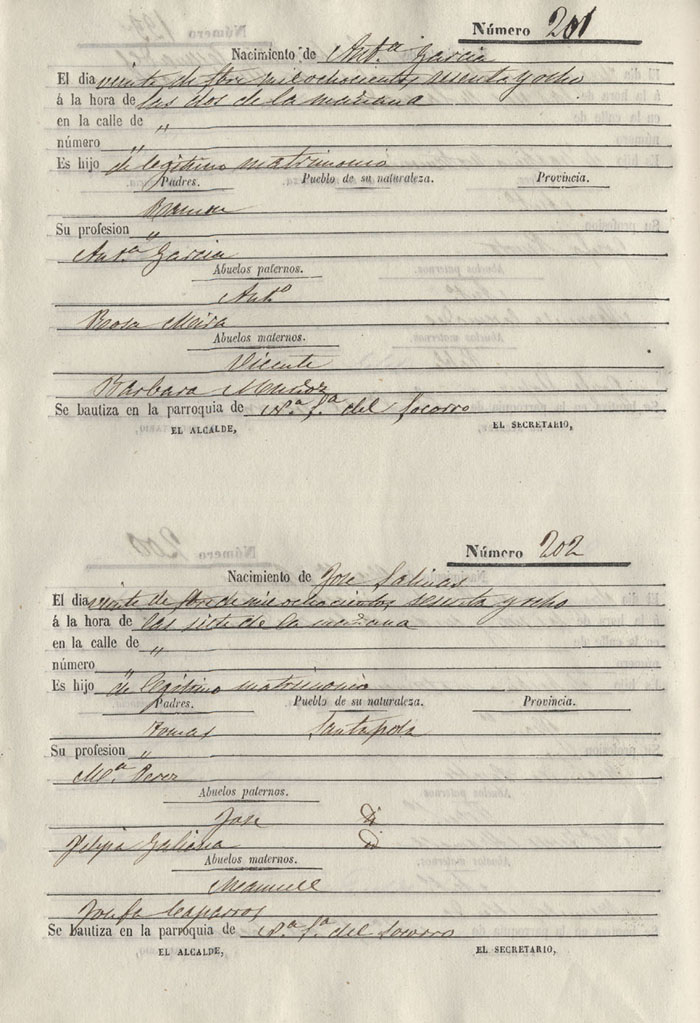 Número 201
Nacimiento de Ant.ª Garcia
El dia veinte de fbre mil ochocientos sesenta y ocho
á la hora de las dos de la mañana
en la calle de "
número "
Es hijo de legítimo matrimonio
Padres. Pueblo de su naturaleza. Provincia.
Ramon
Su profesion "
Ant.ª Garcia
Abuelos paternos.
Ant.º
Rosa Meira
Abuelos maternos.
Vicente
Barbara Muñoz
Se bautiza en la parroquia de N.ª S.ª del Socorro
EL ALCALDE, EL SECRETARIO,
Número 202
Nacimiento de Jose Salinas
El dia veinte de fbre de mil ochocientos sesenta y ocho
á la hora de las siete de la mañana
en la calle de "
número "
Es hijo de legítimo matrimonio
Padres. Pueblo de su naturaleza. Provincia.
Tomas Santapola
Su profesion "
M.ª Perez
Abuelos paternos.
Jose
Felipa Galiana
Abuelos maternos.
Manuel
Josefa Caparros
Se bautiza en la parroquia de N.ª S.ª del Socorro
EL ALCALDE, EL SECRETARIO,